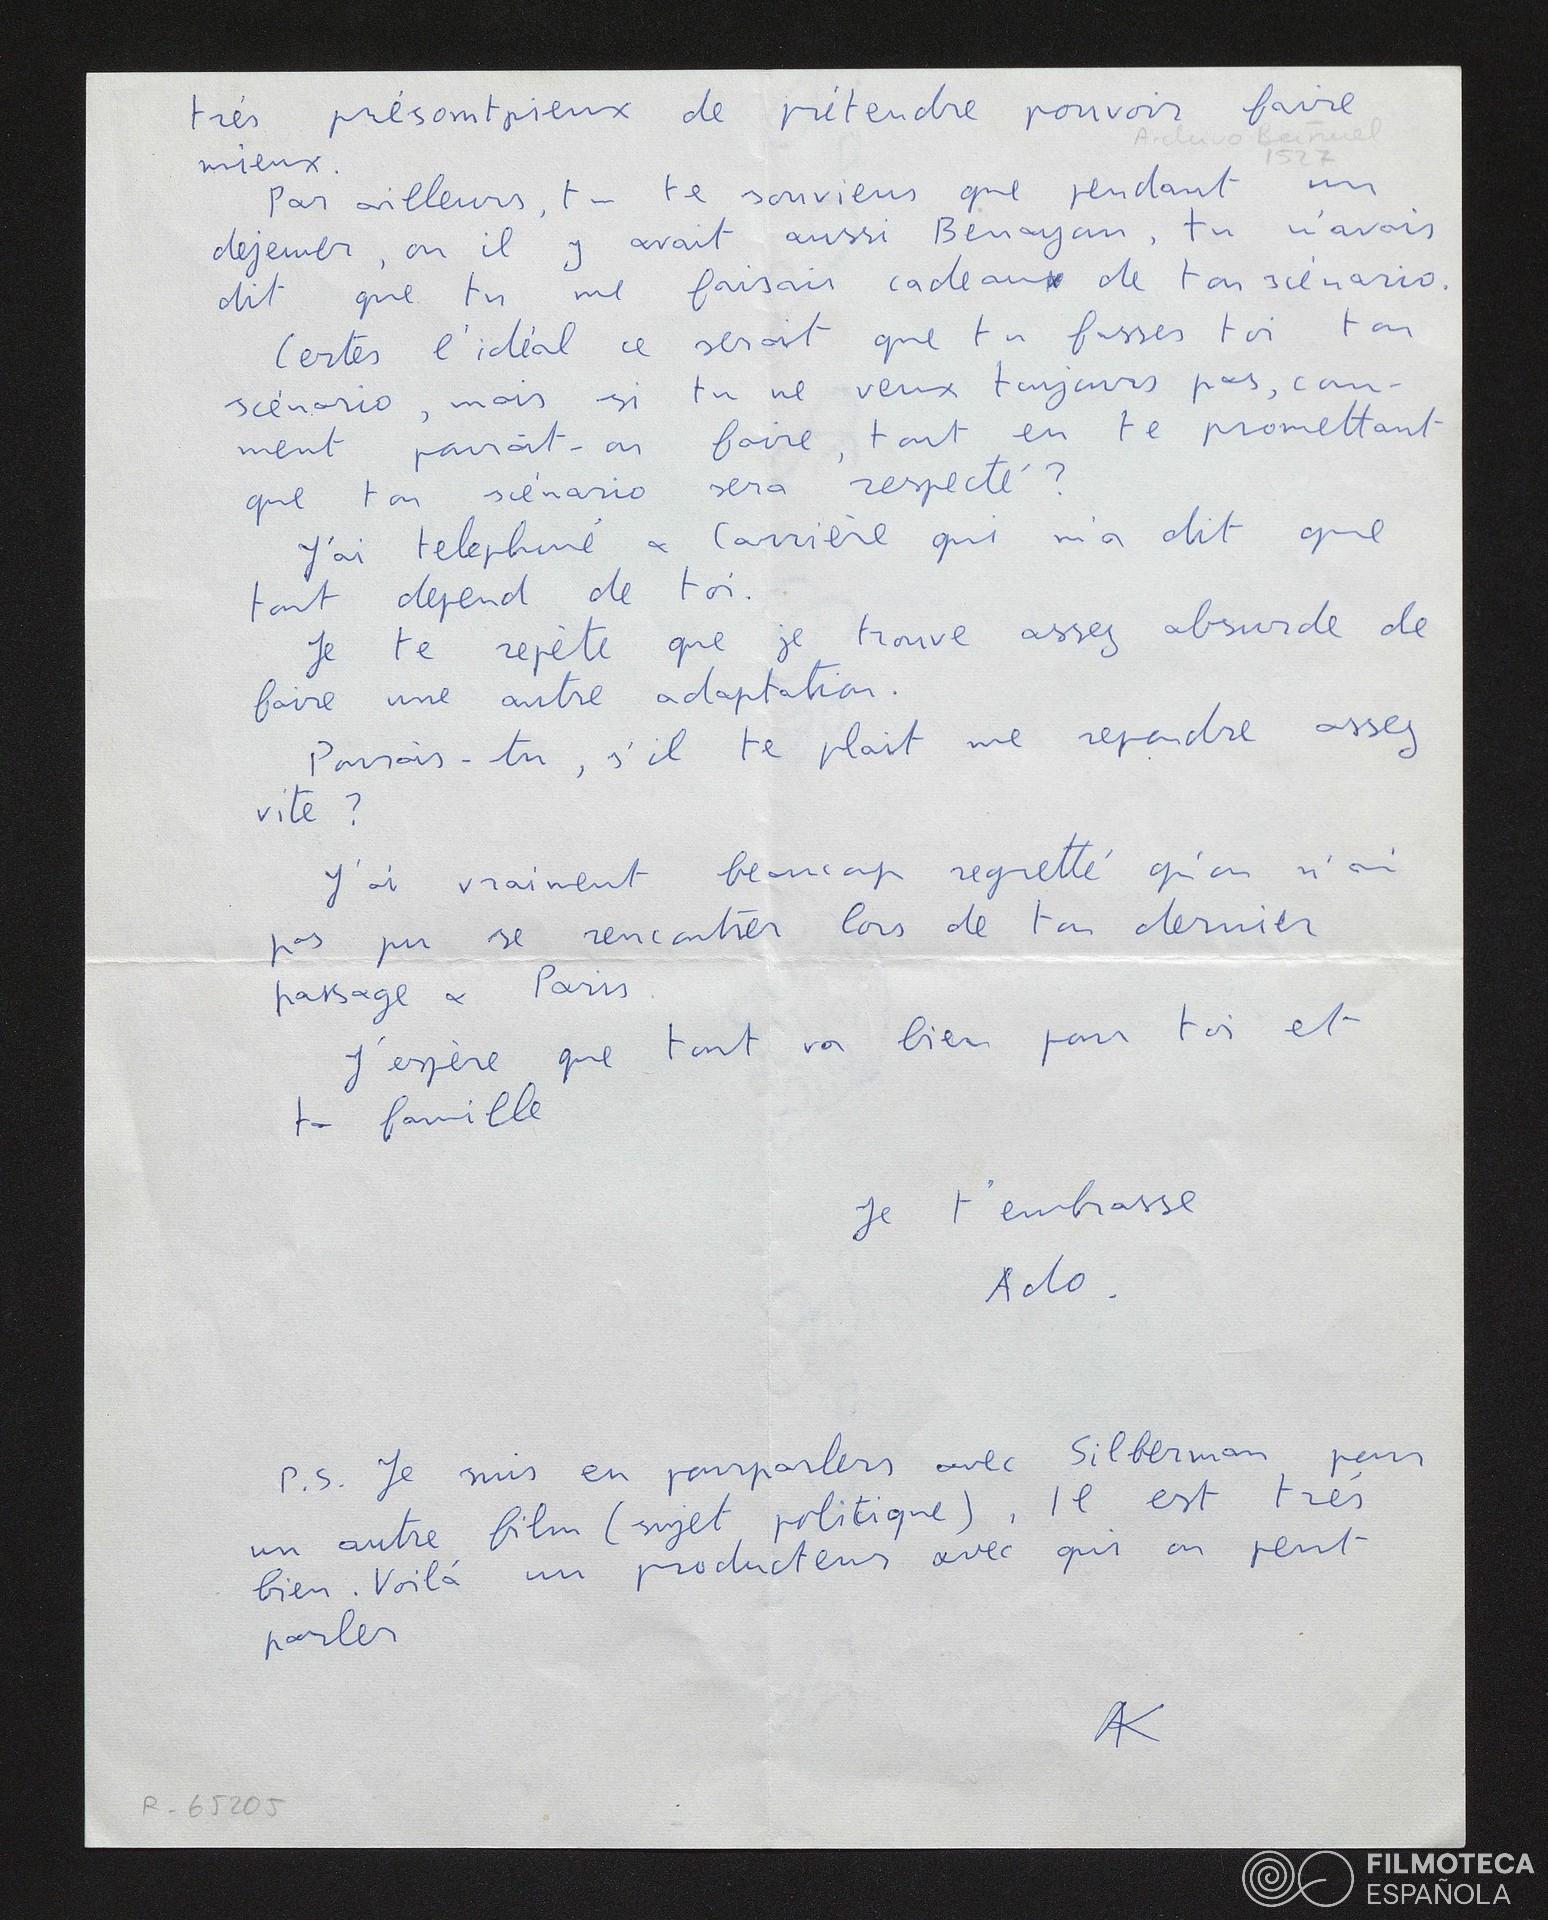 trés présomtpieux de prétendre pouvoir faire
Archivo Buñuel
1527
mieux.
Par ailleurs, tu te souviens que pendant un
dejeuner, ou il y avait aussi Benayoun, tu m'avais
dit que tu me faisais cadeaux de ton scénario.
Certes l'idéal ce serait que tu fasses toi ton
scénario, mais si tu ne veux toujours pas, com-
ment pourait-on faire, tout en te promettant
que ton scénario sera respecté?
J'ai telephoné a Carrière qui m'a dit que
tout depend de toi.
Je te repète que je trouve assez absurde de
faire une autre adaptation.
Pourais-tu, s'il te plait me repondre assez
vite ?
J'ai vraiment beaucoup regretté qu'on n'ai
pas pu se rencontrer lors de ton dernier
passage a Paris
J'espère que tout va bien pour toi et
ta famille
Je t'embrasse
Ado.
P.S. Je suis en pourparlers avec Silberman pour
un autre film (sujet politique), Il est trés
bien. Voilá un producteur avec qui on peut
parler
AK
R-65205
FILMOTECA
ESPAÑOLA